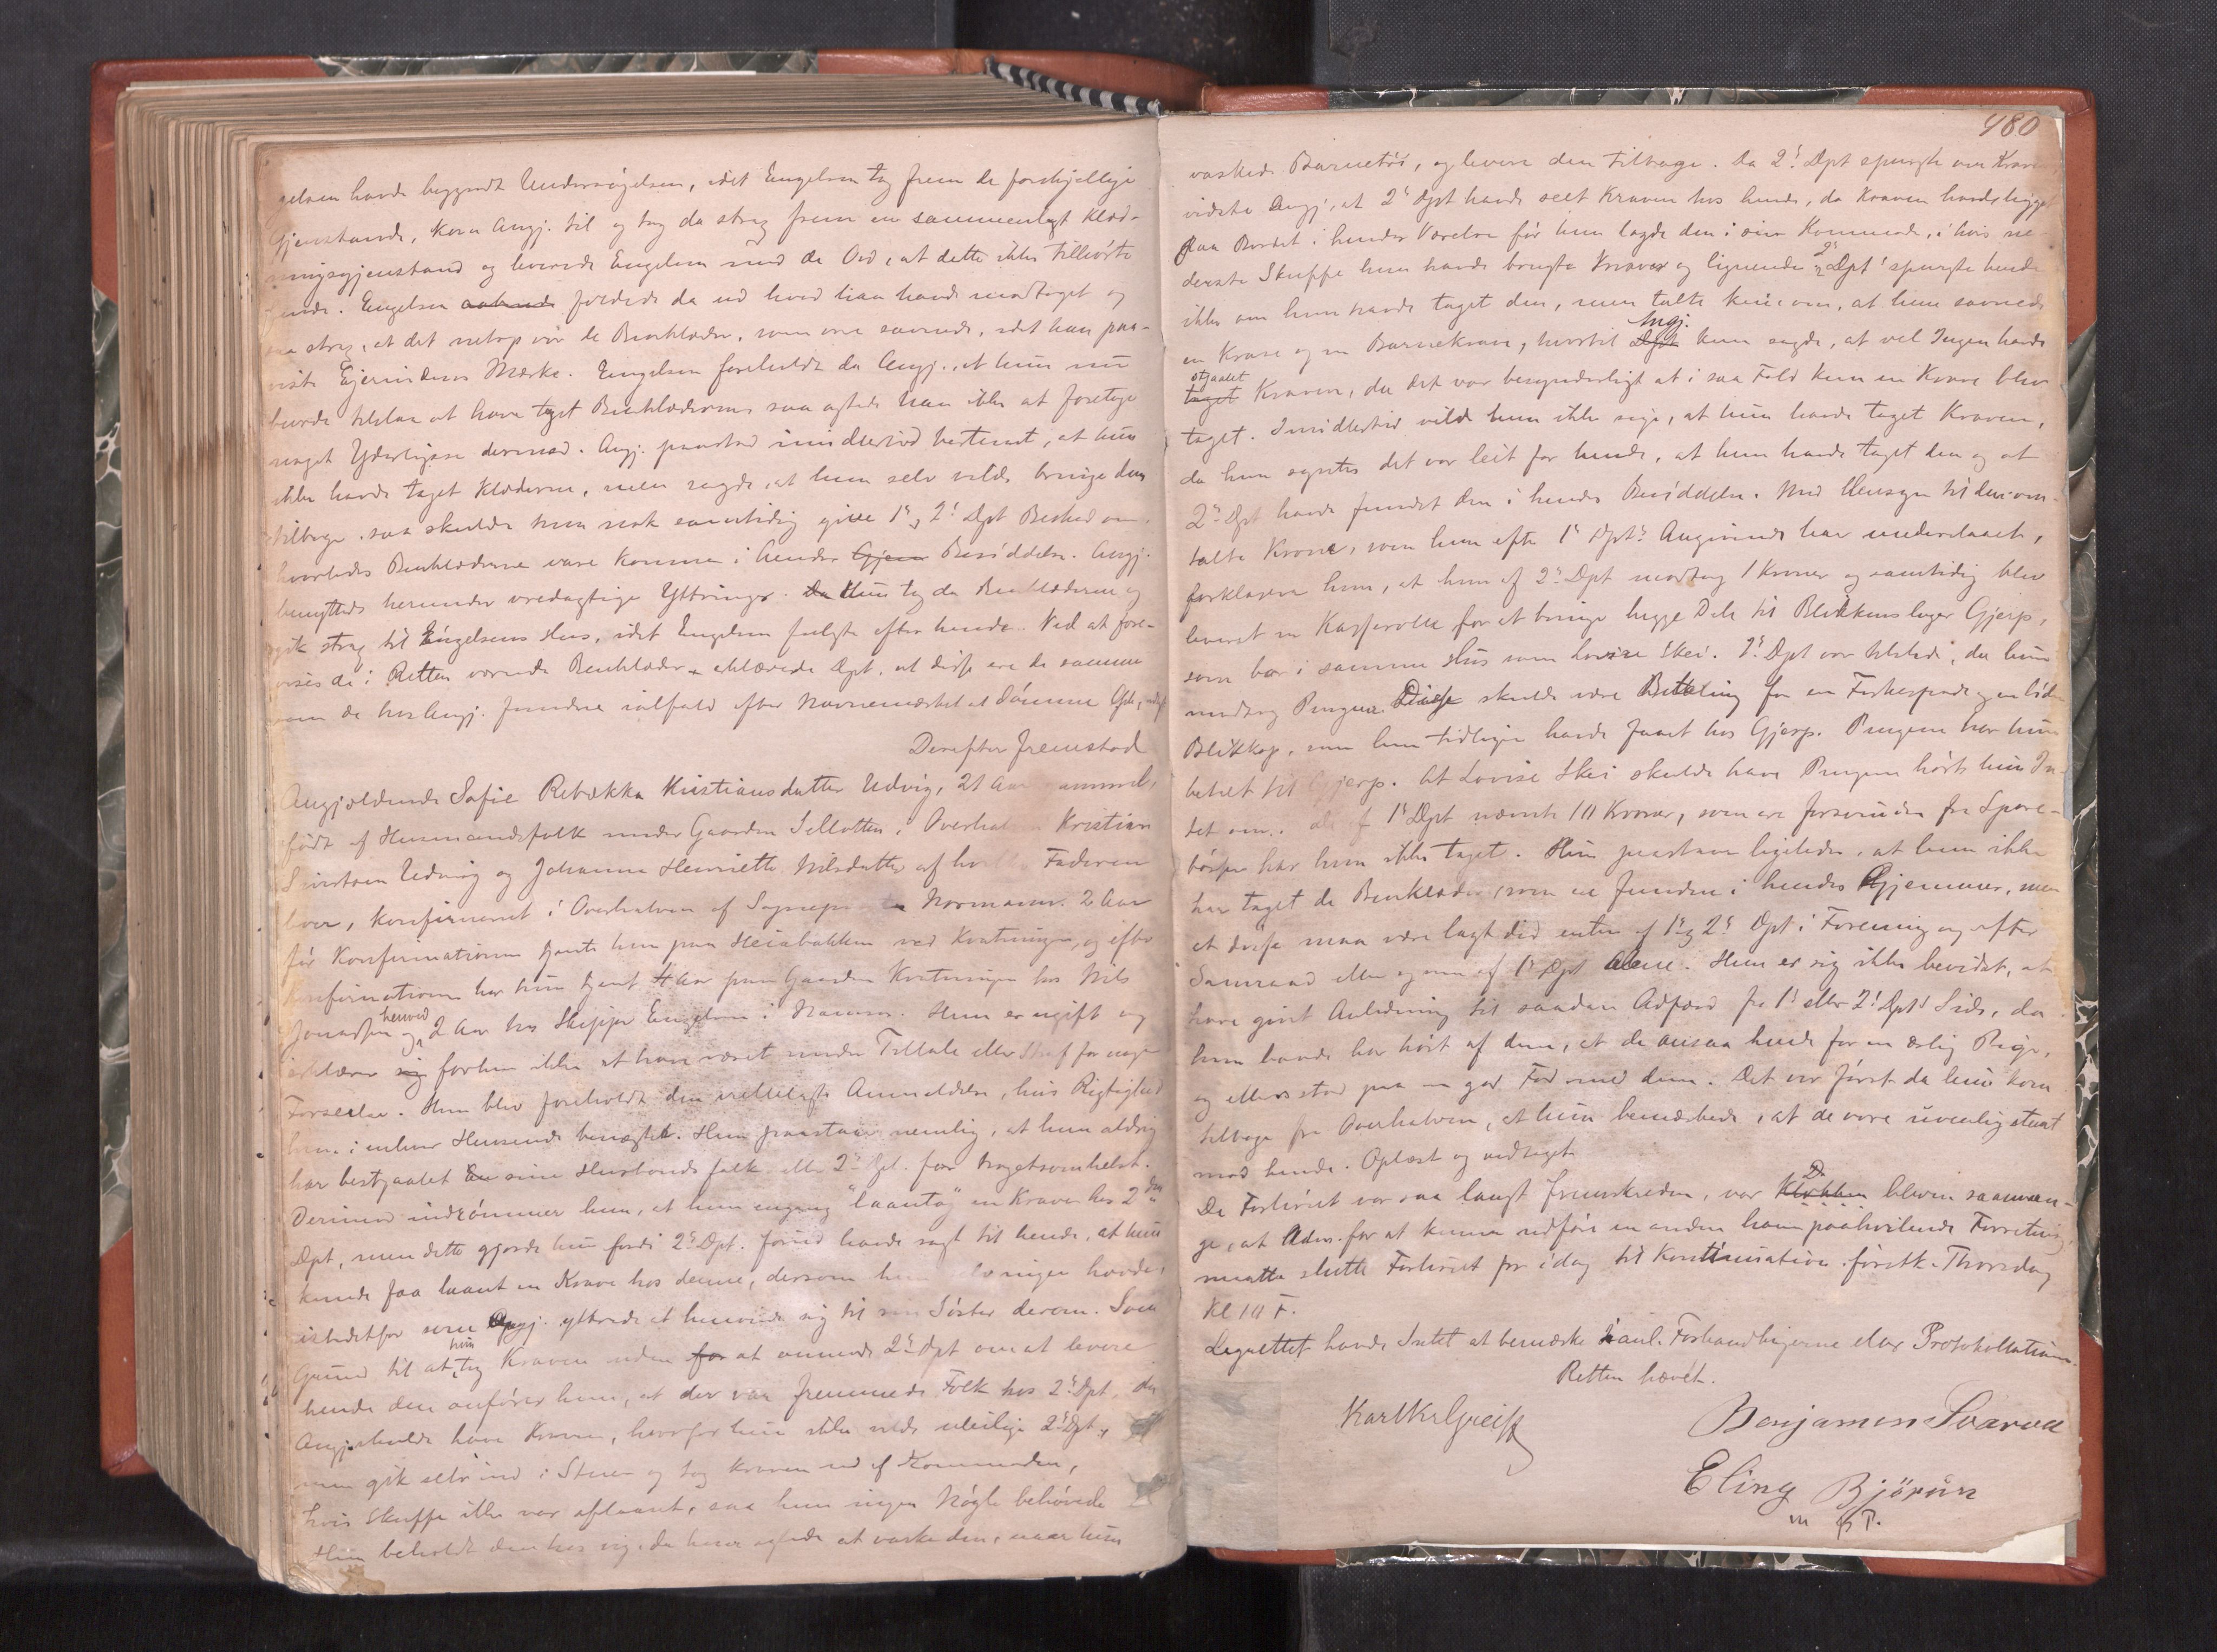 gelsen havde begyndt Undersøgelsen, idet Engelsen tog frem de forskjellige
Gjenstande, kom Angj. til og tog da strax frem en sammenlagt Klæd-
ningsgjenstand og leverede Engelsen med de Ord, at dette ikke tilhørte
hende. Engelsen aabnede foldede da ud hvad han havde modtaget og
saa strax, at det netop var de Benklæder, som vare savnede, idet han paa-
viste Ejerindens Mærke. Engelsen foreholdt da Angj., at hun nu
burde tilstaa at have taget Benklæderne saa agtede han ikke at foretage
noget Yderligere dermed. Angj. paastod imidlertid bestemt, at hun
ikke havde taget Klæderne, men sagde, at hun selv vilde bringe dem
tilbage, saa skulde hun nok samtidig give 1ste og 2det Dpt Besked om
hvorledes Benklæderne vare komne i hendes Gjem Besiddelse. Angj.
benyttede herunder vredagtige Yttringer. Da Hun tog da Benklæderne og
gik strax til Engelsens Hus, idet Engelsen fulgte efter hende. Ved at fore-
vises de i Retten værende Benklæder erklærede Dpt. at disse ere de samme
som de hos Angj. fundne ialfald efter Navnemærket at dømme Opl., vedt.
Derefter fremstod
Angjældende Sofie Rebækka Kristiansdatter Udvig, 21 Aar gammel,
født af Husmandsfolk under Gaarden i Overhalven Kristian
Sivertsen Udvig og Johanna Henriette Nilsdatter af hvilke Faderen
lever, konfirmeret i Overhalven af Sogneprest Normann. 2 Aar
før Konfirmationen tjente hun paa Heiabakken ved Kvatningen, og efter
Konfirmationen har hun tjent 4 Aar paa Gaarden Kvatningen hos Nils
Jonassen og herved 2 Aar hos Skipper Engelsen i Namsos. Hun er ugift og
erklærer sig forhen ikke at have været under Tiltale eller Straf for nogen
Forseelse. Hun blev foreholdt den indkomne Anmeldelse, hvis Rigtighed
hun i enhver Henseende benægtet. Hun paastaar nemlig, at hun aldrig
har bestjaalet En sine Husbondsfolk eller 2det Dpt. for Nogetsomhelst.
Derimod indrømmer hun, at hun engang "laantog" en Krave hos 2det
Dpt, men dette gjorde hun fordi 2det Dpt. forud havde sagt til hende, at hun
kunde faa laant en Krave hos denne, dersom hun ingen havde,
istedetfor som Angj. yttrede at henvende sig til sin Søster derom. Som
Grund til at hun tog Kraven uden for at anmode 2det Dpt om at levere
hende den anfører hun, at der var fremmede Folk hos 2det Dpt. da
Angj. skulde have Kraven, hvorfor hun ikke vilde uleilige 2det Dpt,
men gik selv ind i Stuen og tog Kraven ud af Kommoden,
hvis Skuffe ikke var aflaaset, saa hun ingen Nøgle behøvede
Hun beholdt den hos sig, da hun agtede at vaske den, naar hun
480
vaskede Barnetøi, og levere den tilbage. Da 2det Dpt spurgte om Kraven,
vidste Angj., at 2det Dpt havde seet Kraven hos hende, da Kraven havde ligget
paa Bordet i hendes Værelse før hun lagde den i sin Kommode, i hvis ne-
derste Skuffe hun havde brugte Kraver og lignende. 2det Dpt spurgte hende
ikke om hun havde taget den, men talte kun om, at hun savnede
en Krave og en Barnekrave, hvortil Dpt Angj. kun sagde, at vel Ingen havde
taget stjaalet Kraven, da det var besynderligt at i saa Fald kun en Krave blev
taget. Imidlertid vilde hun ikke sige, at hun havde taget Kraven,
da hun syntes det var leit for hende, at hun havde taget den og at
2det Dpt havde fundet den i hendes Besiddelse. Med Hensyn til den om-
talte Krone, som hun efter 1ste Dpts Angivende har underslaaet,
forklarer hun, at hun af 2det Dpt modtog 1 Krone og samtidig blev
leveret en Kasserolle for at bringe begge Dele til Blikkenslager Gjerp,
som bor i samme Hus som Lovise Skei. 2det Dpt var tilstede, da hun
modtog Pengene. Disse skulde være Betaling for en og en liden
Blikkop, som hun tidligere havde faaet hos Gjerp. Pengene har hun
betalt til Gjerp. At Lovise Skei skulde have Pengene hørte hun In-
tet om. de af 1ste Dpt nævnte 10 Kroner, som ere forsvundne fra Spare-
bøssen har hun ikke taget. Hun paastaar ligeledes, at hun ikke
har taget de Benklæder, som ere fundne i hendes Gjemmer, men
at disse maa være lagt did enten af 1ste og 2det Dpt i Forening og efter
Samraad eller og om af 1ste Dpt alene. Hun er sig ikke bevidst, at
have givet Anledning til saadan Adfærd fra 1ste eller 2det Dpts Side, da
hun baade har hørt af dem, at de ansaa hende for en ærlig Pige,
og ellers stod paa en god Fod med dem. Det var først da hun kom
tilbage fra Overhalven, at hun bemærkede, at de vare uvenlig stemt
mod hende. Oplæst og vedtaget.
Da Forhøret var saa langt fremskreden, var Klokken bleven saa man-
ge, at Adm. for at kunne udføre en anden ham paahvilende Forretning,
maatte slutte Forhøret for idag til Kontinuation førstk. Thorsdag
Kl 10 F.
Lagrettet havde Intet at bemærke i anl. Forhandlingerne eller Protokollationen.
Retten hævet.
Benjamin Svarva
Eling Bjørün
m. p. P.